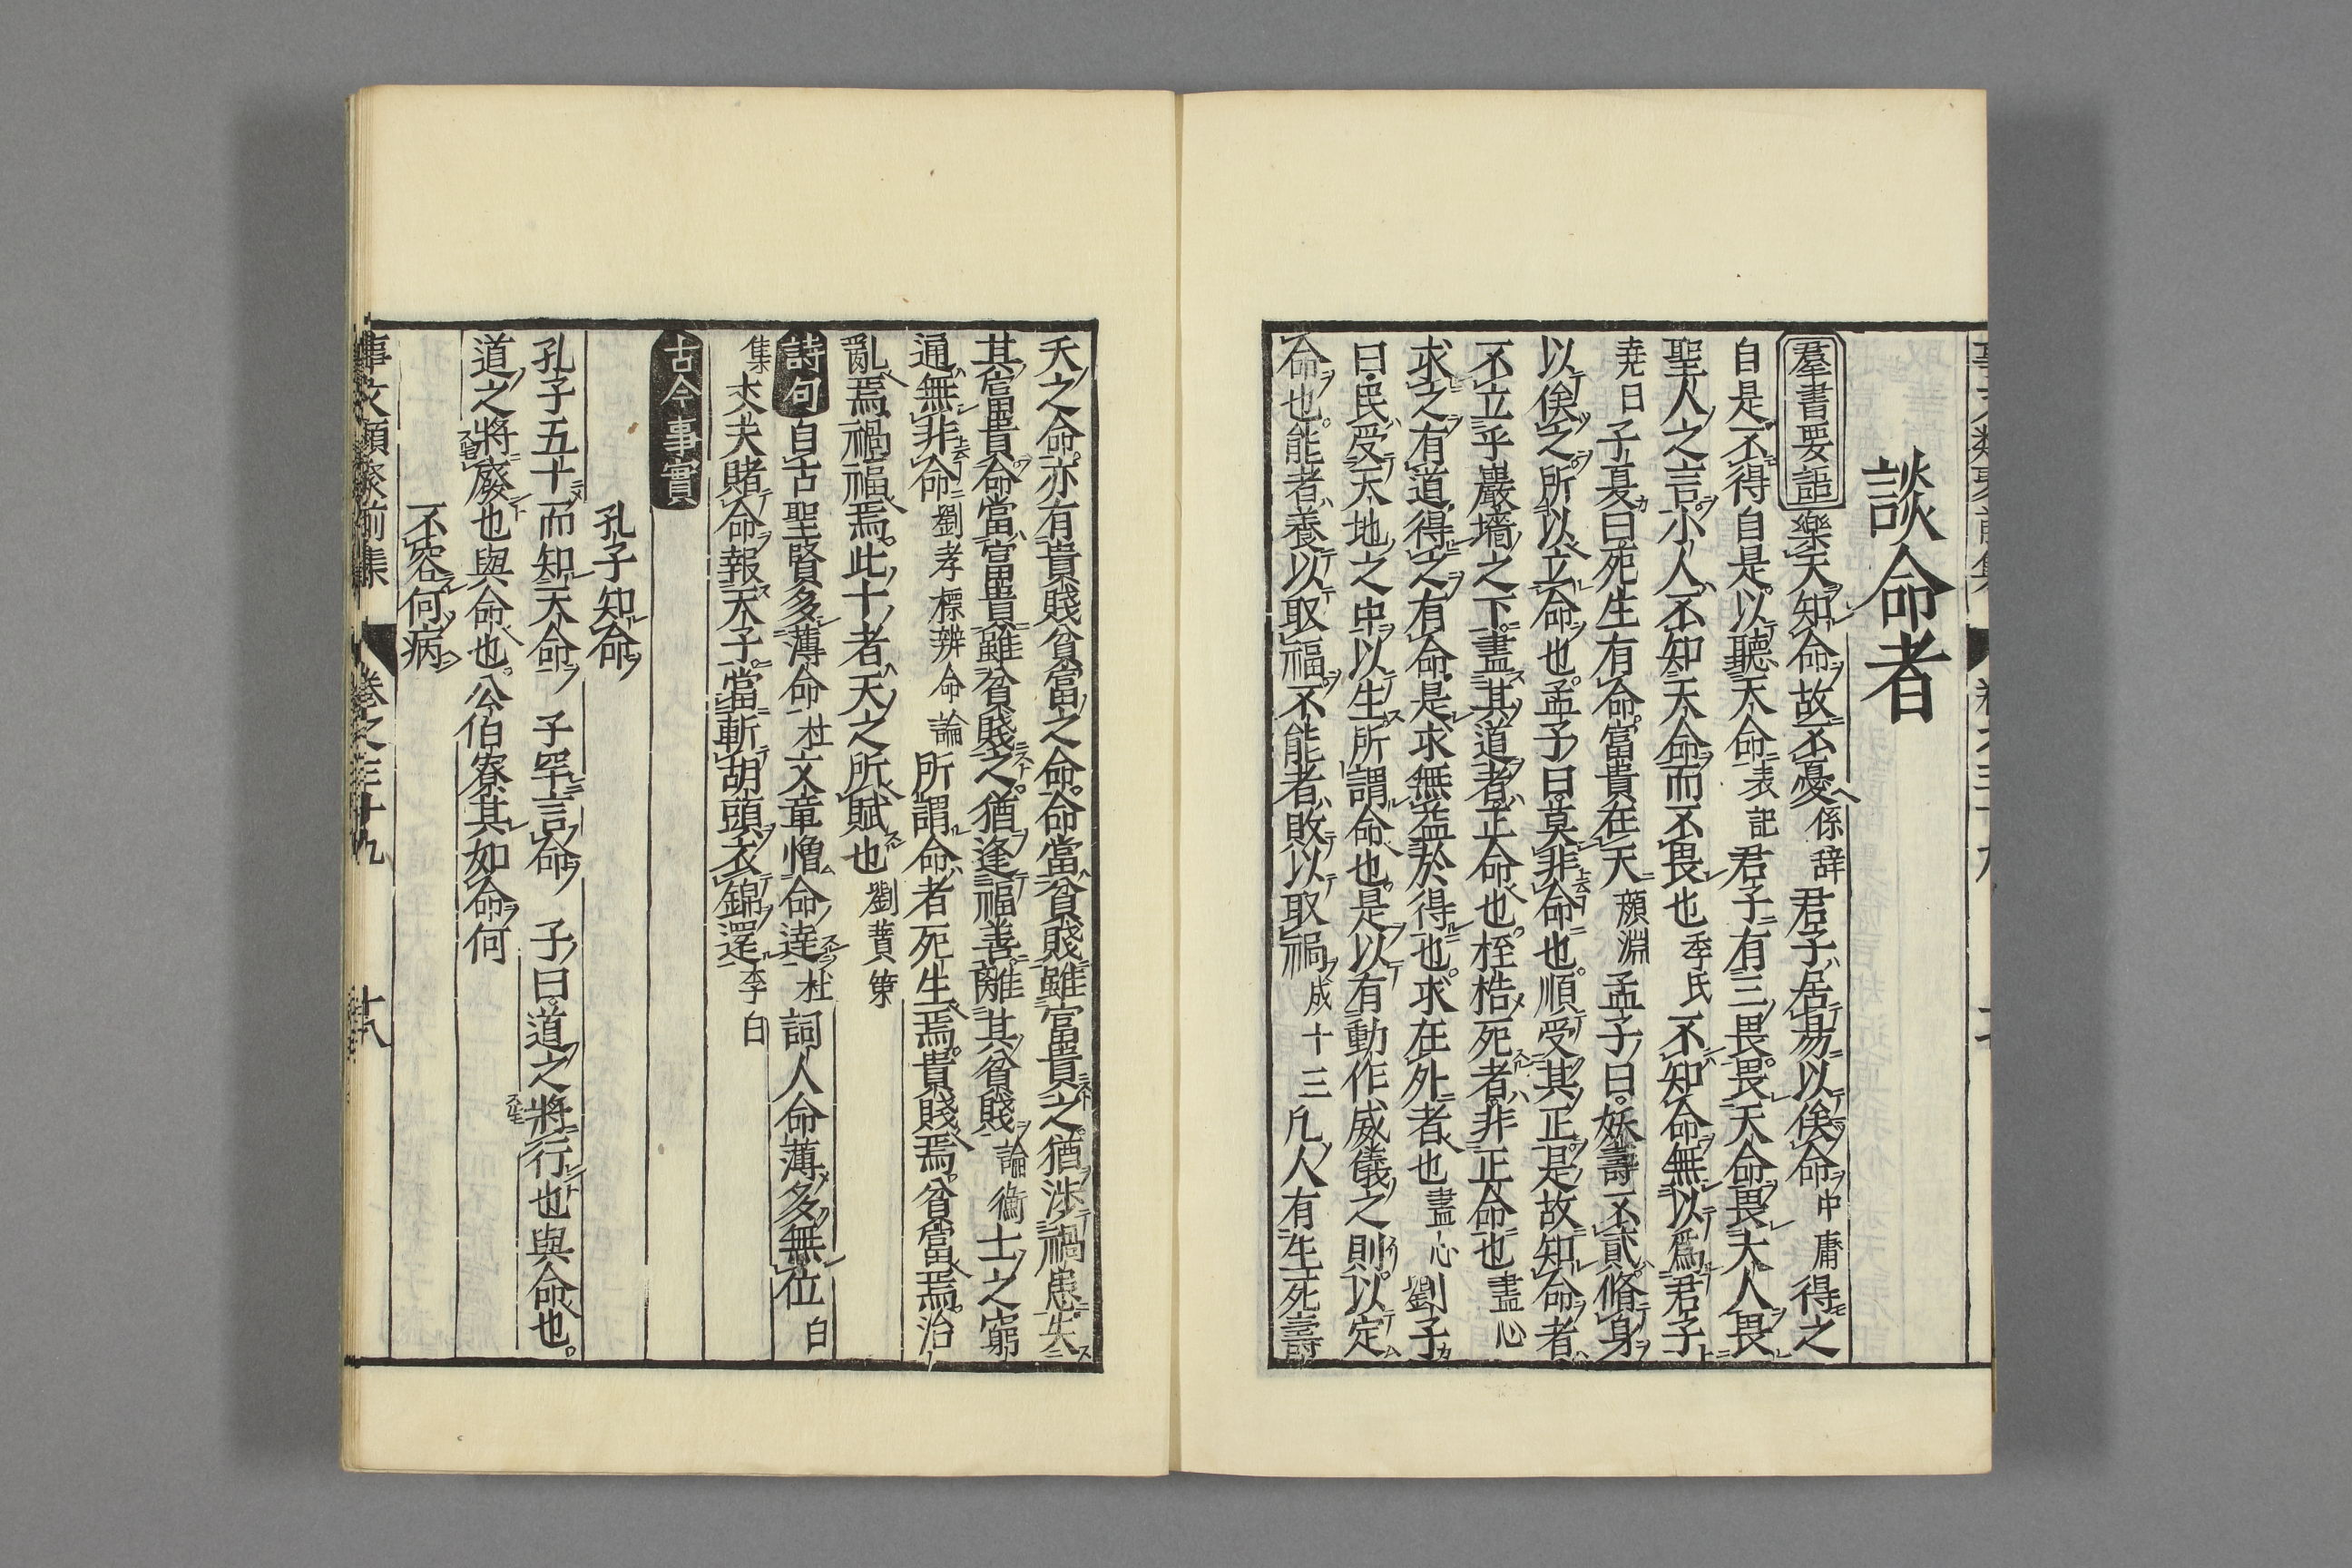 談命者
羣書要語 樂天知命故不憂係辞 君子居易以俟命中庸 得之
自是不得自是以聽天命表記 君子有三畏畏天命畏大人畏
聖人之言小人不知天命而不畏也季氏 不知命無以爲君子
尭曰 子夏曰死生有命富貴在天顔淵 孟子曰妖壽不貳脩身
以俟之所以立命也孟子曰莫非命也順受其正是故知命者
不立乎巖墻之下盡其道者正命也桎梏死者非正命也盡心
求之有道得之有命是求無益於得也求在外者也盡心 劉子
曰民受天地之中以生所謂命也是以有動作威儀之則以定
命也能者養以取福不能者敗以取禍成十三 凡人有生死壽
夭之命亦有貴賤貧富之命命當貧賤雖富貴之猶涉禍患失
其富貴命當富貴雖貧賤之猶逢福善離其貧賤論衡 士之窮
通無非命劉孝標辨命論 所謂命者死生焉貴賤焉貧富焉治
亂焉禍福焉此十者天之所賦也劉蕡策
詩句 自古聖賢多薄命杜 文章憎命達杜 詞人命薄多無位白
集 丈夫賭命報天子當斬胡頭衣錦還李白
古今事實
孔子知命
孔子五十而知天命 子罕言命 子曰道之將行也與命也
道之將廢也與命也公伯寮其如命何
不容何病
事文類聚前集 卷之三十九 十八